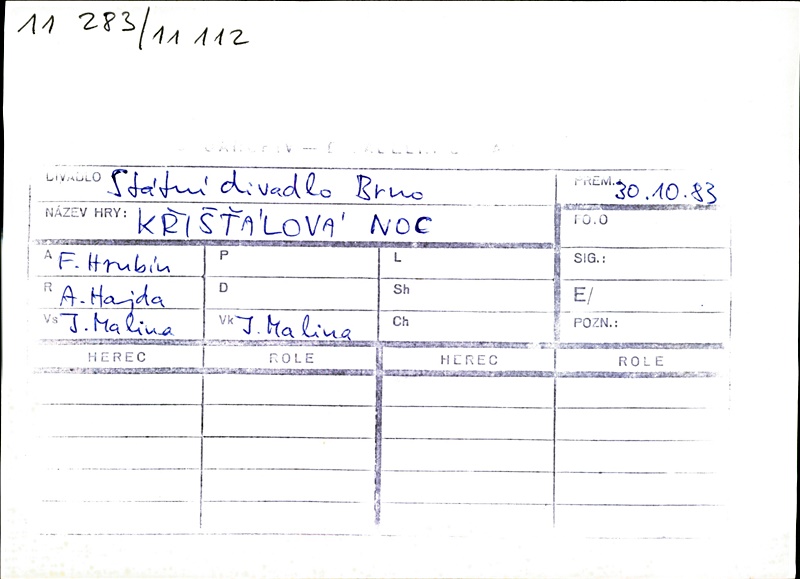 11 283/11 112
DIVADLO Státní divadlo Brno PREM.: 30.10.83
NÁZEV HRY: KŘIŠŤÁLOVÁ NOC FO.O
A F. Hrubín P L SIG.:
R A. Hajda D Sh E/
Vs J. Malina Vk J. Malina Ch POZN.:
HEREC ROLE HEREC ROLE